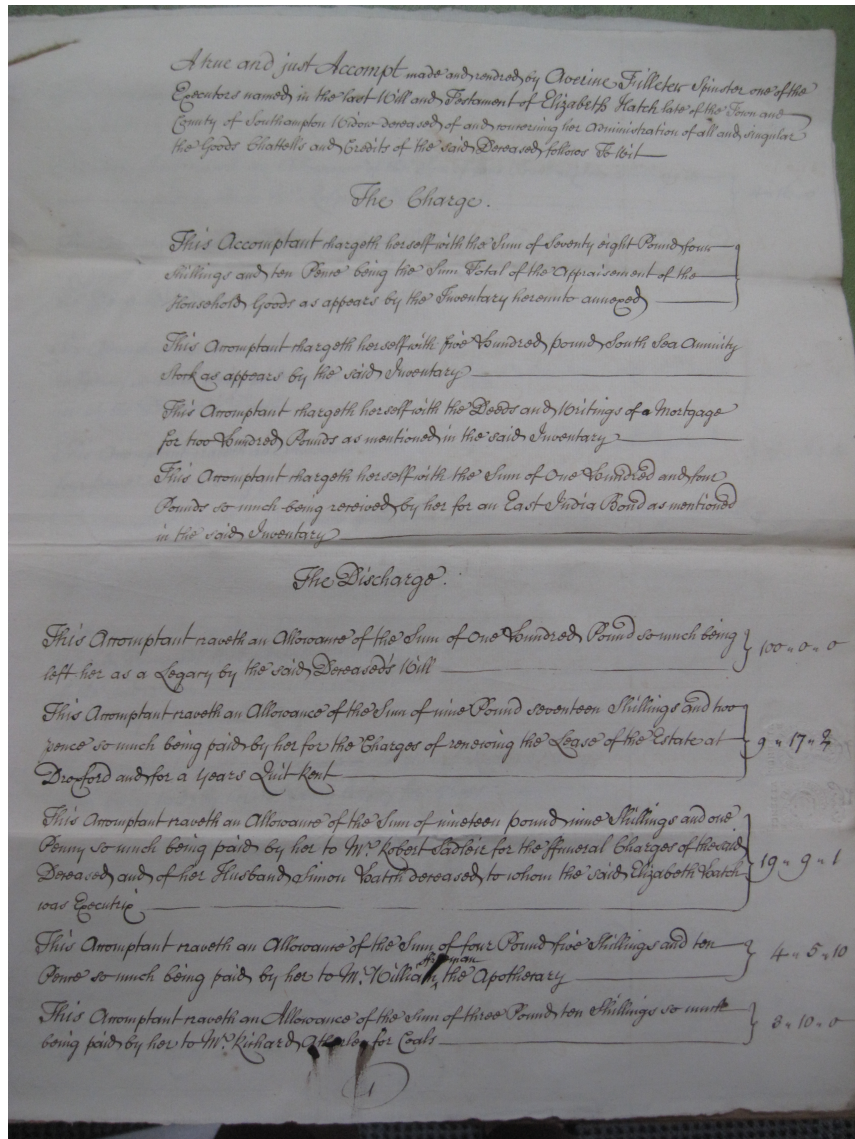 A true and just Accompt made and rendred by Averine Fulleter Spinster one of the
Executors named in the last Will and Testament of Elizabeth Hatch late of the Town and
County of Southampton Widow deceased of and concerning her Administration of all and singular
the Goods Chattells and Credits of the said Deceased follows To Wit
The Charge.
This Accomptant chargeth herself with the Sum of Seventy eight Pound four
Shillings and ten Pence being the Sum Total of the Appraisement of the
Household Goods as appears by the Inventory hereunto annexed
This Accomptant chargeth herself with five Hundred pound South Sea Annuity
Stock as appears by the said Inventory
This Accomptant chargeth herself with the Deeds and Writings of a Mortgage
for two Hundred Pounds as mentioned in the said Inventory
This Accomptant chargeth herself with the Sum of One Hundred and four
Pounds so much being received by her for an East India Bond as mentioned
in the said Inventory
The Discharge.
This Accomptant craveth an Allowance of the Sum of One Hundred Pound so much being 100 " 0 " 0
left her as a Legacy by the said Deceased's Will
This Accomptant craveth an Allowance of the Sum of nine Pound seventeen Shillings and two
pence so much being paid by her for the Charges of renewing the Lease of the Estate at 9 " 17 " 2
Droxford and for a Years Quit Rent
This Accomptant craveth an Allowance of the Sum of nineteen pound nine Shillings and one
Penny so much being paid by her to Mr. Robert Sadleir for the ffuneral Charges of the said
Deceased and of her Husband Simon Hatch deceased to whom the said Elizabeth Hatch 19 " 9 " 1
was Executrix
This Accomptant craveth an Allowance of the Sum of four Pound five Shillings and ten 4 " 5 " 10
Pence so much being paid by her to Mr. William the Apothecary
This Accomptant craveth an Allowance of the Sum of three Pound ten Shillings so much 3 " 10 " 0
being paid by her to Mr. Richard for Coals
1